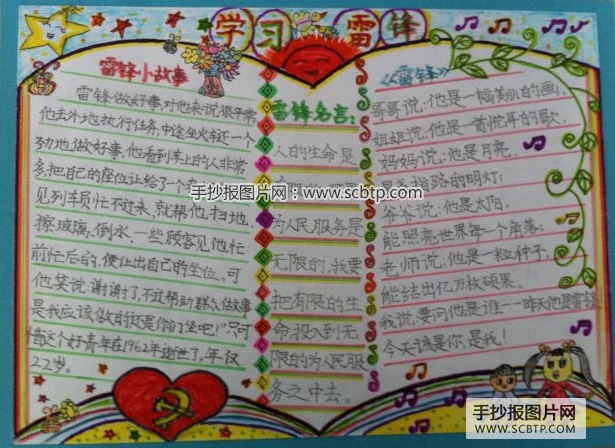 学习雷锋
雷锋小故事
雷锋做好事对他来说很平常
他去外地执行任务,中途坐火车还一个
劲地做好事,他看到车上的人非常
多,把自己的座位让给了
见列车员忙不过来,就帮他,扫地、
擦玻璃,倒水、一些顾客见他忙
前忙后的,便让出自己的坐位。可
他笑说:谢谢了,不过帮助群众做事
是我应该做的还是你们坐吧!"只可
惜这个好青年在1962年逝世了,年仅
22岁。
雷锋名言:
人的生命是
为人民服务是
无限的,我要
把有限的生
命,投入到无
限的为人民服
务之中去。
《雷锋》
哥哥说:他是一幅美丽的画,
姐姐说:他是一首悦耳的歌,
妈妈说:他是月亮,
指路的明灯;
爷爷说:他是太阳,
能照亮世界每一个角落;
老师说:他是一粒种子,
能结出亿万枚硕果。
我说:要问他是谁——昨天他是雷锋
今天该是你,是我!
手抄报图片网:www.scbtp.com
手抄报图片网
WWW.SCBTP.COM